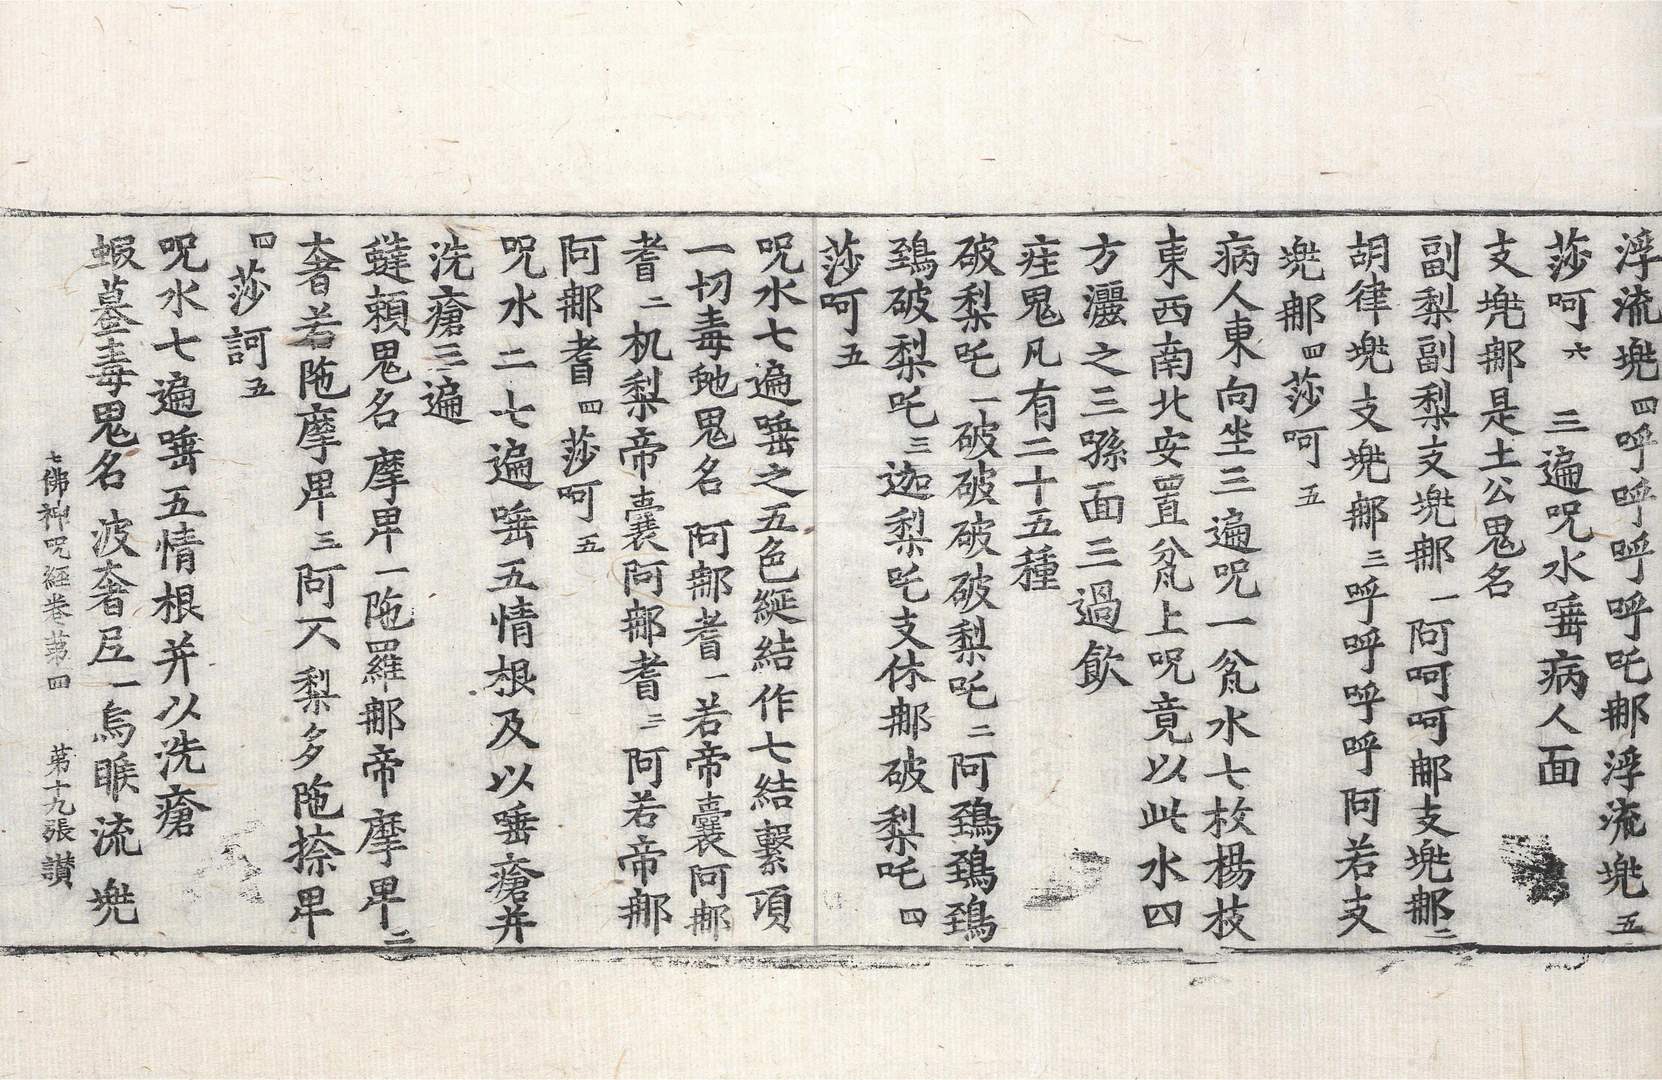 浮流兠四呼呼呼呼吒㖠浮流兠五
莎呵六　三遍呪水唾病人面
支兠㖠是土公鬼名
副梨副梨支兠㖠一阿呵呵㖠支兠㖠二
胡律兠支兠㖠三呼呼呼呼阿若支
兠㖠四莎呵五
病人東向坐三遍呪一瓫水七枚楊枝
東西南北安置瓫上呪竟以此水四
方灑之三噀面三過飲
疰鬼凡有二十五種
破梨吒一破破破破梨吒二阿鵄鵄鵄
鵄破梨吒三迦梨吒支休㖠破梨吒四
莎呵五
呪水七遍唾之五色綖結作七結繫項
一切毒虵鬼名　阿㖠耆一若帝囊阿㖠
耆二机梨帝囊阿㖠耆三阿若帝㖠
阿㖠耆四莎呵五
呪水二七遍唾五情根及以唾瘡并
洗瘡三遍
䗖賴鬼名　摩卑一陁羅㖠帝摩卑二
奢若陁摩卑三阿不梨多陁捺卑
四莎訶五
呪水七遍唾五情根并以洗瘡
蝦蟇毒鬼名　波奢尼一烏睺流兠
七佛神呪經卷苐四　苐十九張　讃